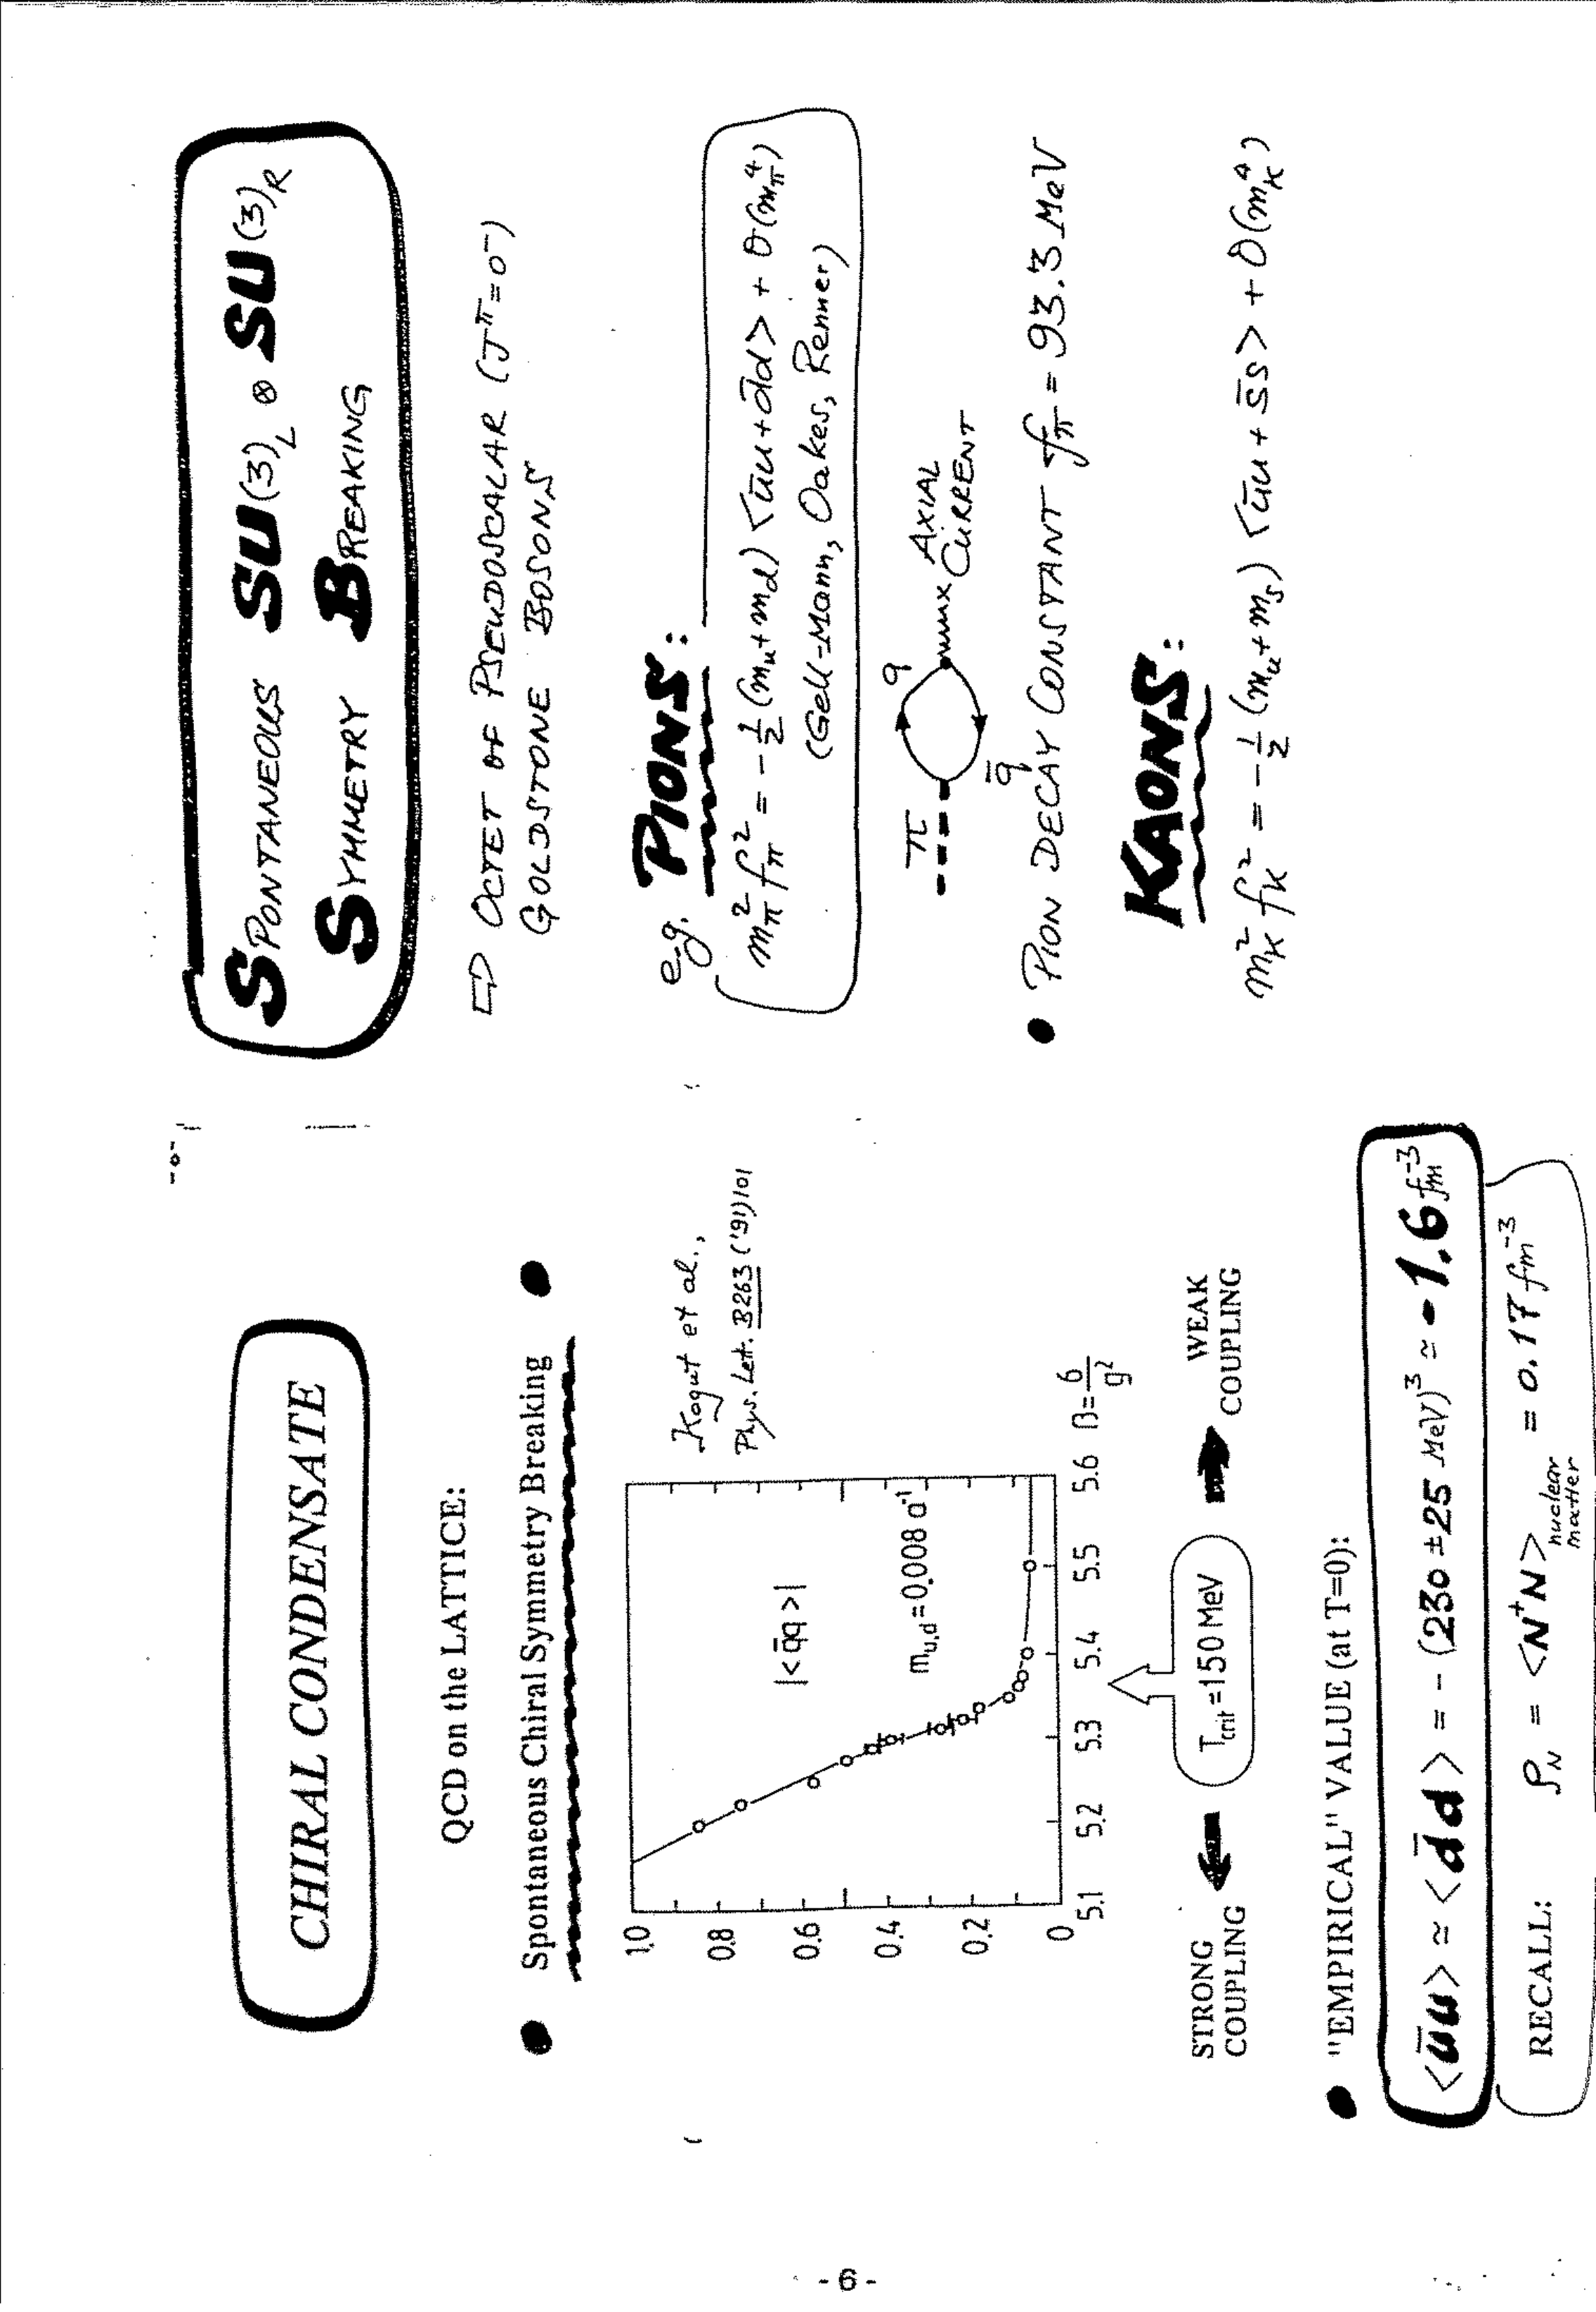 CHIRAL CONDENSATE
QCD on the LATTICE:
● Spontaneous Chiral Symmetry Breaking ●
Kogut et al.,
Phys. Lett. B263 ('91) 101
1.0
0.8
0.6
0.4
0.2
0
|<q̄q>|
m_{u,d} = 0.008 a⁻¹
5.1 5.2 5.3 5.4 5.5 5.6 β = 6/g²
STRONG
COUPLING
T_crit = 150 MeV
WEAK
COUPLING
● "EMPIRICAL" VALUE (at T=0):
<ūu> ≃ <d̄d> = -(230 ± 25 MeV)³ ≃ -1.6 fm⁻³
RECALL: ρ_N = <N⁺N>_{nuclear matter} = 0.17 fm⁻³
SPONTANEOUS SU(3)_L ⊗ SU(3)_R
SYMMETRY BREAKING
⇨ OCTET OF PSEUDOSCALAR (J^π = 0⁻)
GOLDSTONE BOSONS
e.g. PIONS:
m_π² f_π² = -½ (m_u + m_d) <ūu + d̄d> + O(m_π⁴)
(Gell-Mann, Oakes, Renner)
π q q̄ AXIAL
CURRENT
● PION DECAY CONSTANT f_π = 93.3 MeV
KAONS:
m_K² f_K² = -½ (m_u + m_s) <ūu + s̄s> + O(m_K⁴)
- 6 -